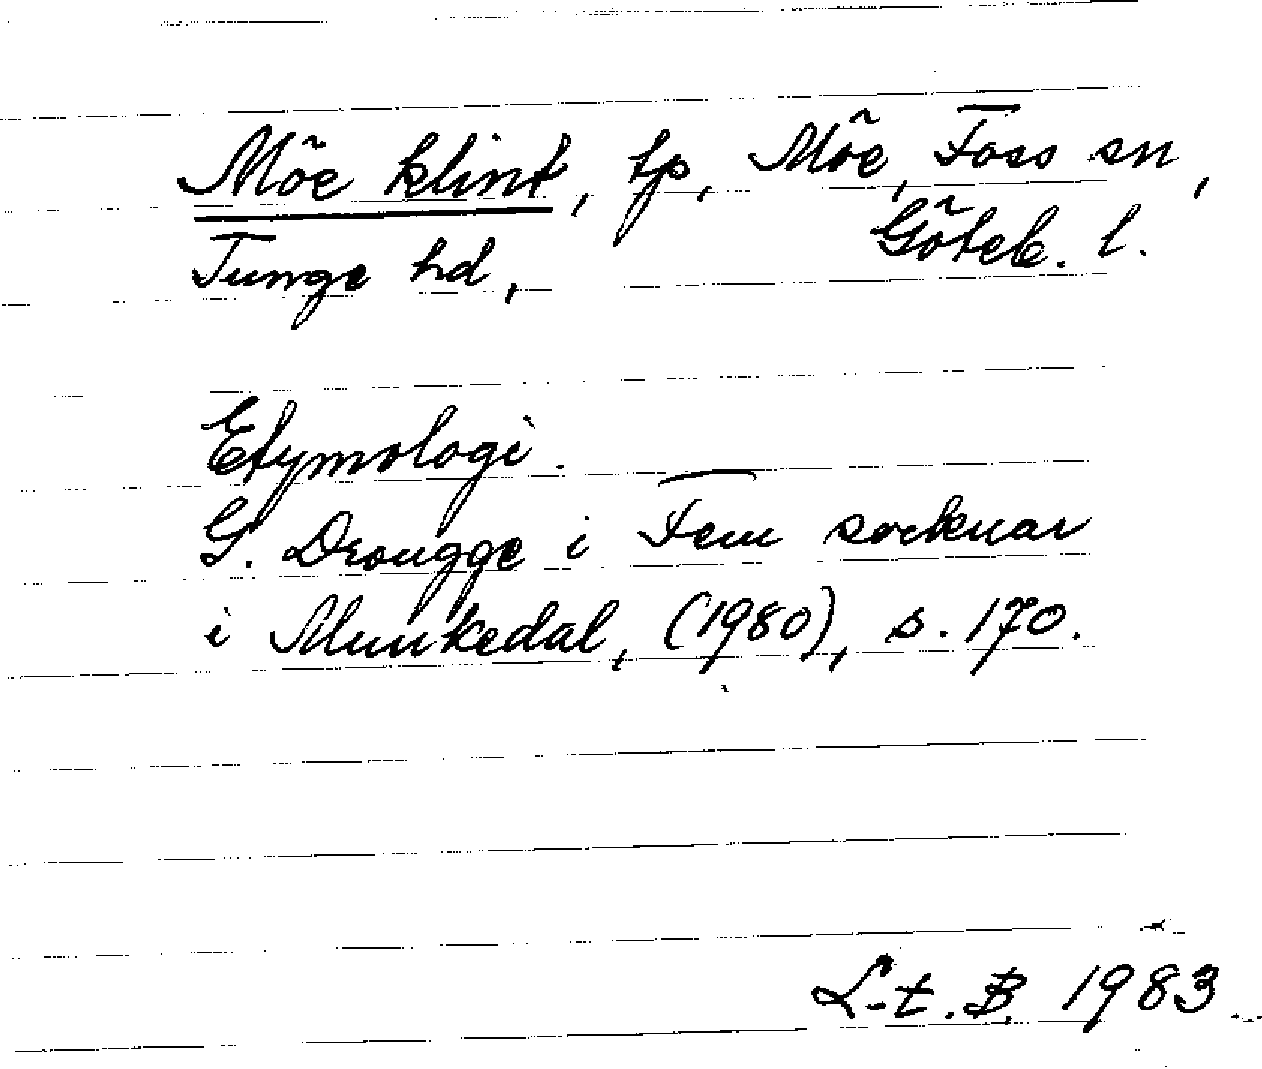 Möe klint, tp, Möe, Foss sn,
Tunge hd, Göteb. l.
Etymologi.
G. Drougge i Fem socknar
i Munkedal, (1980), s. 170.
L-t. B. 1983